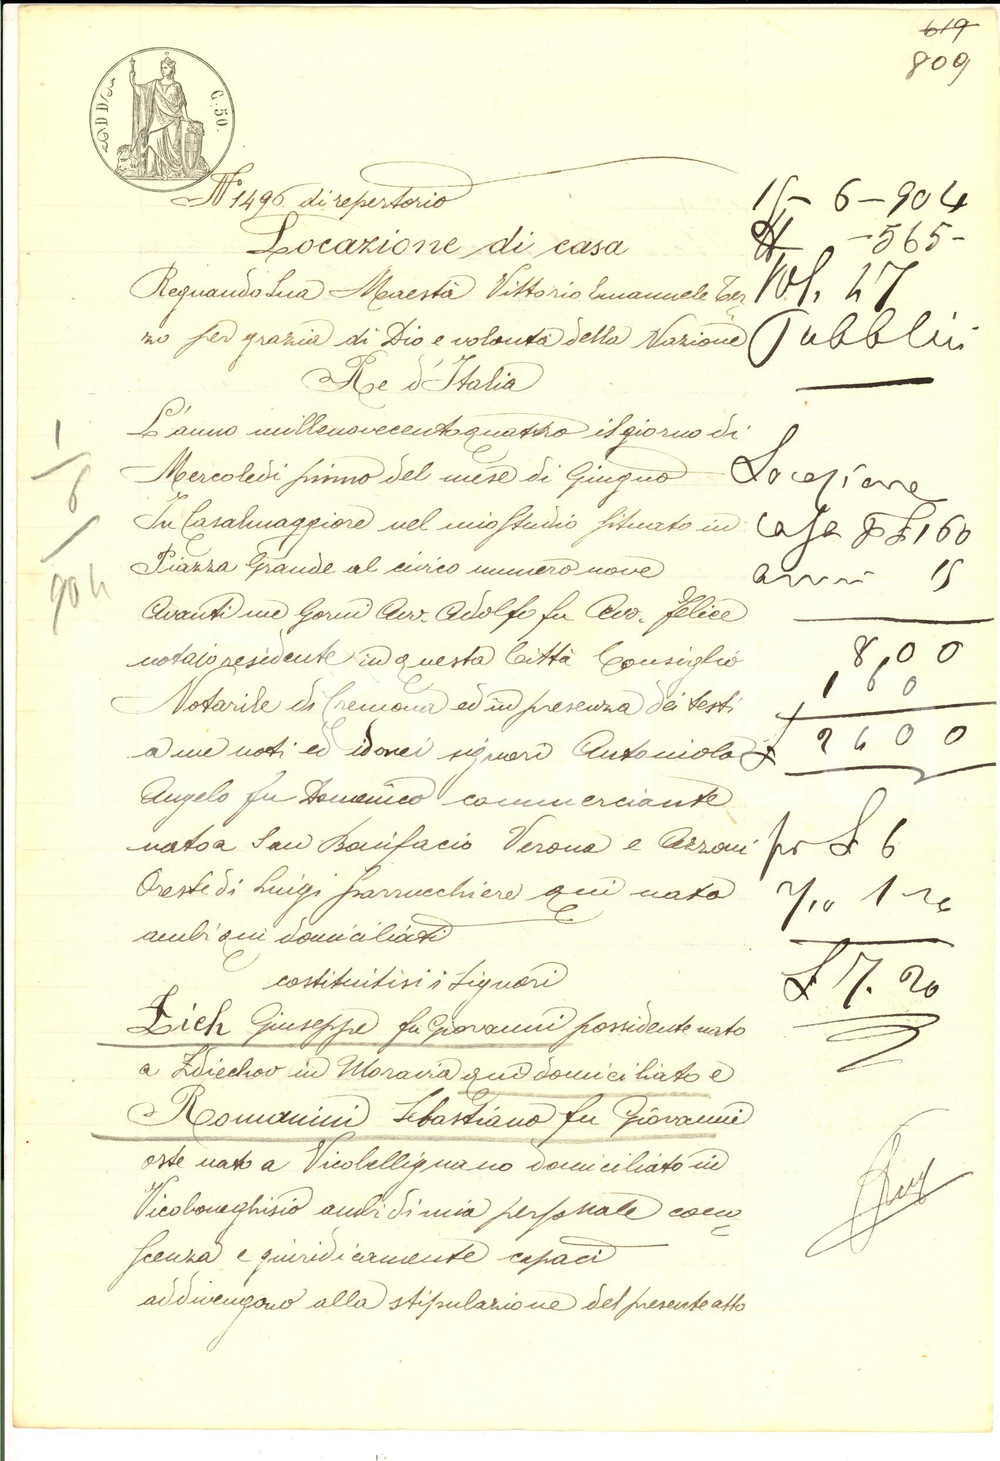 619
809
C. 50.
N° 1496 di repertorio
Locazione di casa
Regnando Sua Maestà Vittorio Emanuele Ter
zo per grazia di Dio e volontà della Nazione
Re d'Italia
L'anno millenovecentoquattro il giorno di
Mercoledì primo del mese di Giugno
In Casalmaggiore nel mio studio situato in
Piazza Grande al civico numero nove
Avanti me Gorni Avv. Adolfo fu Avv. Felice
notaio residente in questa Città Consiglio
Notarile di Cremona ed in presenza dei testi
a me noti ed idonei signori Antoniola
Angelo fu Domenico commerciante
nato a San Bonifacio Verona e Azzoni
Oreste di Luigi parrucchiere qui nato
ambi qui domiciliati
costituitisi i Signori
Zich Giuseppe fu Giovanni possidente nato
a Zdiechov in Moravia qui domiciliato e
Romanini Sebastiano fu Giovanni
oste nato a Vicobellignano domiciliato in
Vicoboneghisio ambi di mia personale cono
scenza e giuridicamente capaci
addivengono alla stipulazione del presente atto
1
6
904
15-6-904
-565-
Vol. 47
Pubblici
Locazione
casa p £ 160
anni 15
800
160
£ 2600
£ 6
7/10 1 20
£ 7.20